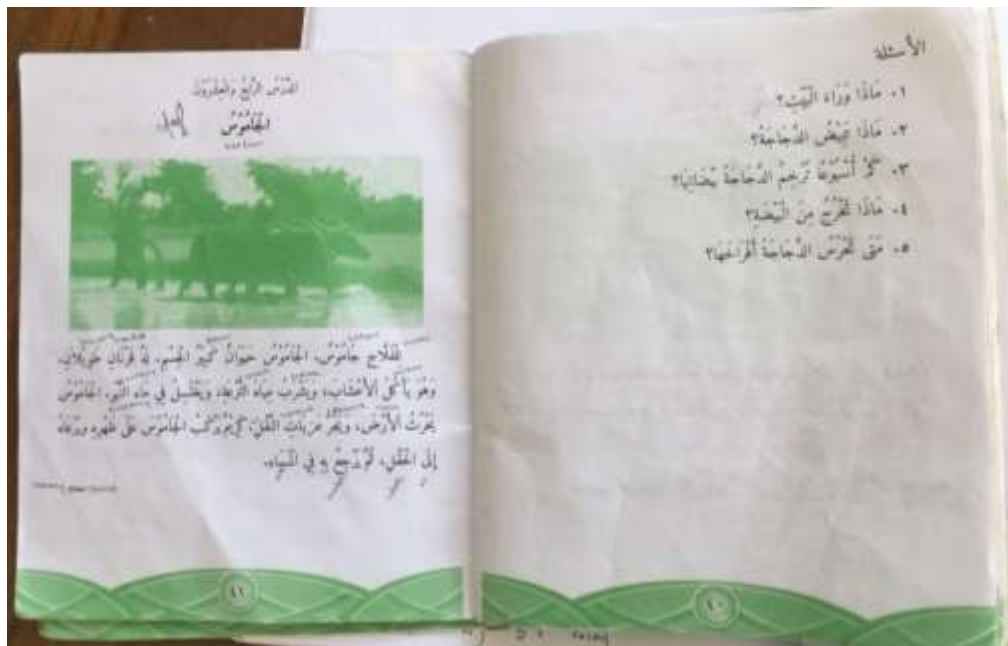 الأسئلة
١. مَاذَا وَرَاءَ الْبَيْتِ؟
٢. مَاذَا تَبِيْضُ الدَّجَاجَةُ؟
٣. كَمْ أُسْبُوْعًا تَرْخَمُ الدَّجَاجَةُ بَيْضَاتِهَا؟
٤. مَاذَا تَخْرُجُ مِنَ الْبَيْضَةِ؟
٥. مَتَى تَحْرُسُ الدَّجَاجَةُ أَفْرَاخَهَا؟
٤٠
الدَّرْسُ الرَّابِعُ وَالْعِشْرُوْنَ
الْجَامُوْسُ
لِلْفَلَّاحِ جَامُوْسٌ، الْجَامُوْسُ حَيَوَانٌ كَبِيْرُ الْجِسْمِ، لَهُ قَرْنَانِ طَوِيْلَانِ،
وَهُوَ يَأْكُلُ الْأَعْشَابَ، وَيَشْرَبُ مِيَاهَ التُّرْعَةِ، وَيَغْتَسِلُ فِي مَاءِ النَّهْرِ، الْجَامُوْسُ
يَحْرُثُ الْأَرْضَ، وَيَجُرُّ عَرَبَاتِ النَّقْلِ، يَرْكَبُ الْجَامُوْسَ عَلَى ظَهْرِهِ
إِلَى الْحَقْلِ، ثُمَّ يَرْجِعُ بِهِ فِي الْمَسَاءِ.
٤١